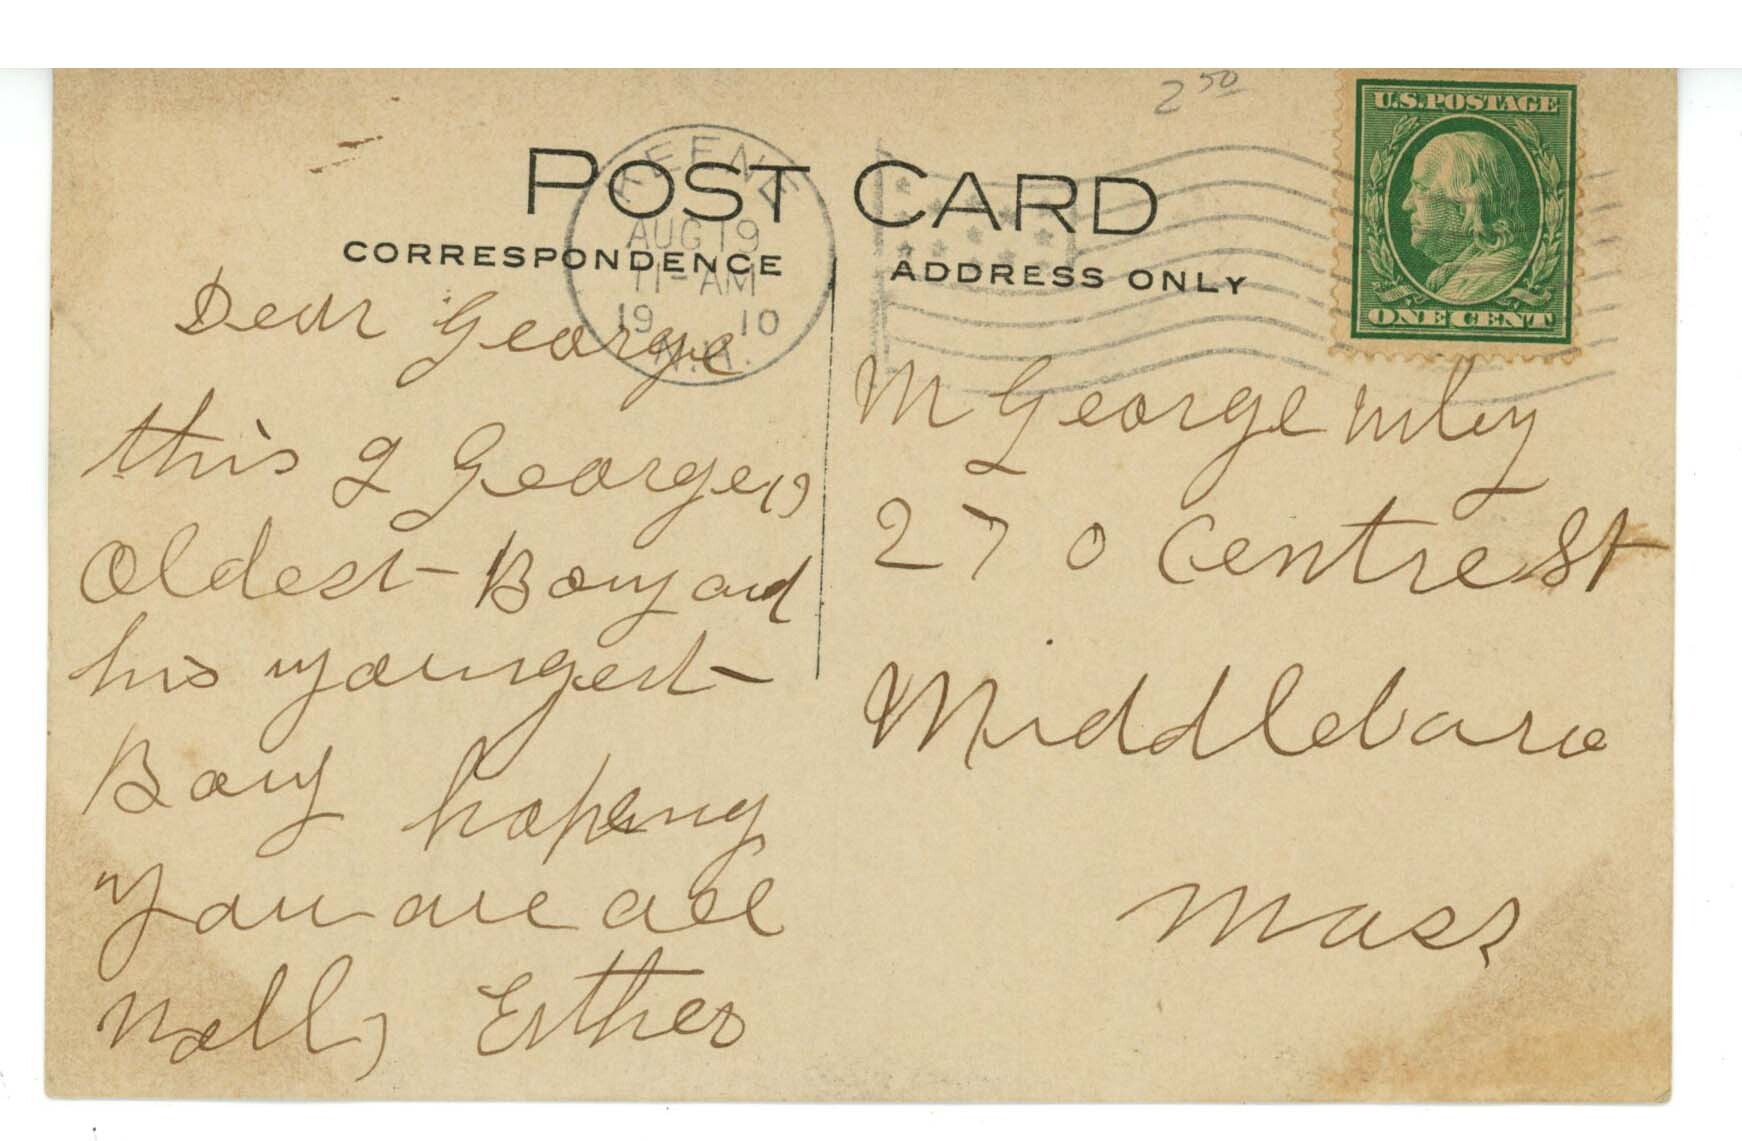 2 50
U.S. POSTAGE
ONE CENT
KEENE
AUG 19
11-AM
19 10
N.H.
POST CARD
CORRESPONDENCE
ADDRESS ONLY
Dear George
this
George,s
Oldest Bouy and
his youngest
Bouy hopeing
you are all
Well, Esther
M George
270 Centre St
Middleboro
Mass